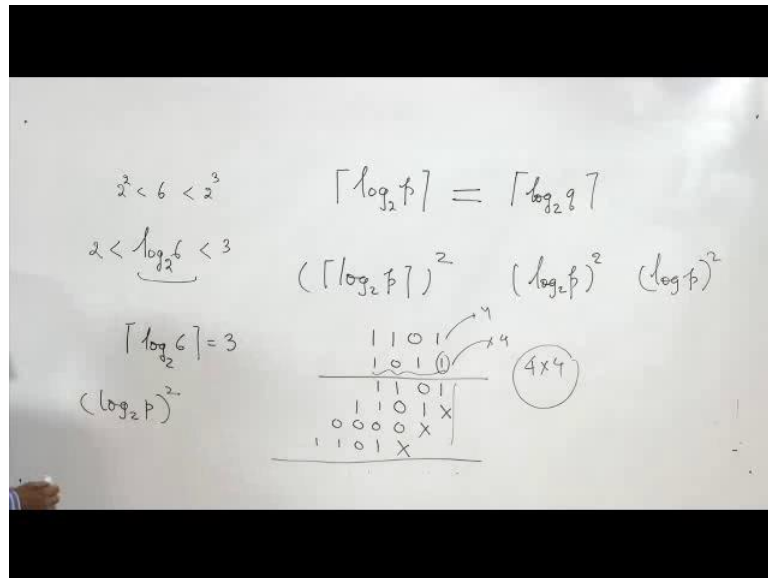 2² < 6 < 2³
2 < log₂6 < 3
⌈log₂6⌉ = 3
(log₂p)²
⌈log₂p⌉ = ⌈log₂q⌉
(⌈log₂p⌉)² (log₂p)² (log p)²
1 1 0 1 4
1 0 1 1 x4
1 1 0 1
1 1 0 1 X
0 0 0 0 X
1 1 0 1 X
4x4